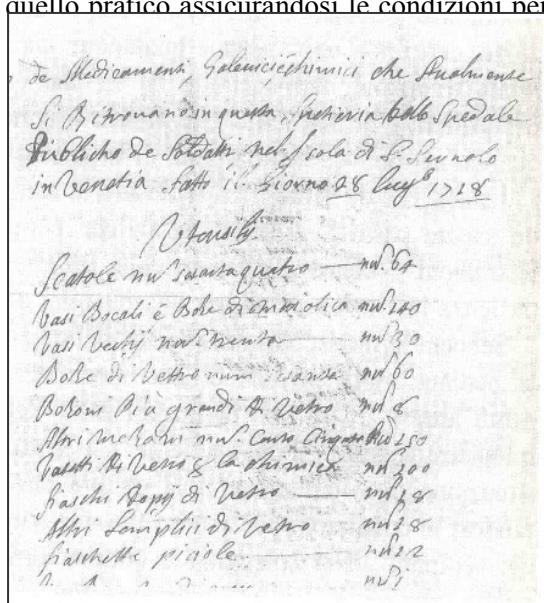 quello pratico assicurandosi le condizioni per
de Medicamenti, Galenici e chimici che Atualmente
Si Ritrovano in questa Spetieria dello Spedale
Publicho de Soldatti nell'Isola di S. Servolo
in Venetia fatto il Giorno 28 1718
Utensilij
Scatole nu° sesantaquatro nu° 64
Vasi Bocali è Boze di maiolica nu° 140
Vasi Vechij nu° trenta nu° 30
Boze di Vettro num sesanta nu° 60
Bozoni Più grandi di Vetro nu° 8
Altri nu° Cento Cinquanta 150
Vasetti di Vetro la chimica nu° 200
fiaschi dopij di Vetro nu° 18
Altri Semplici di Vetro nu° 28
fiaschette picole nu° 22